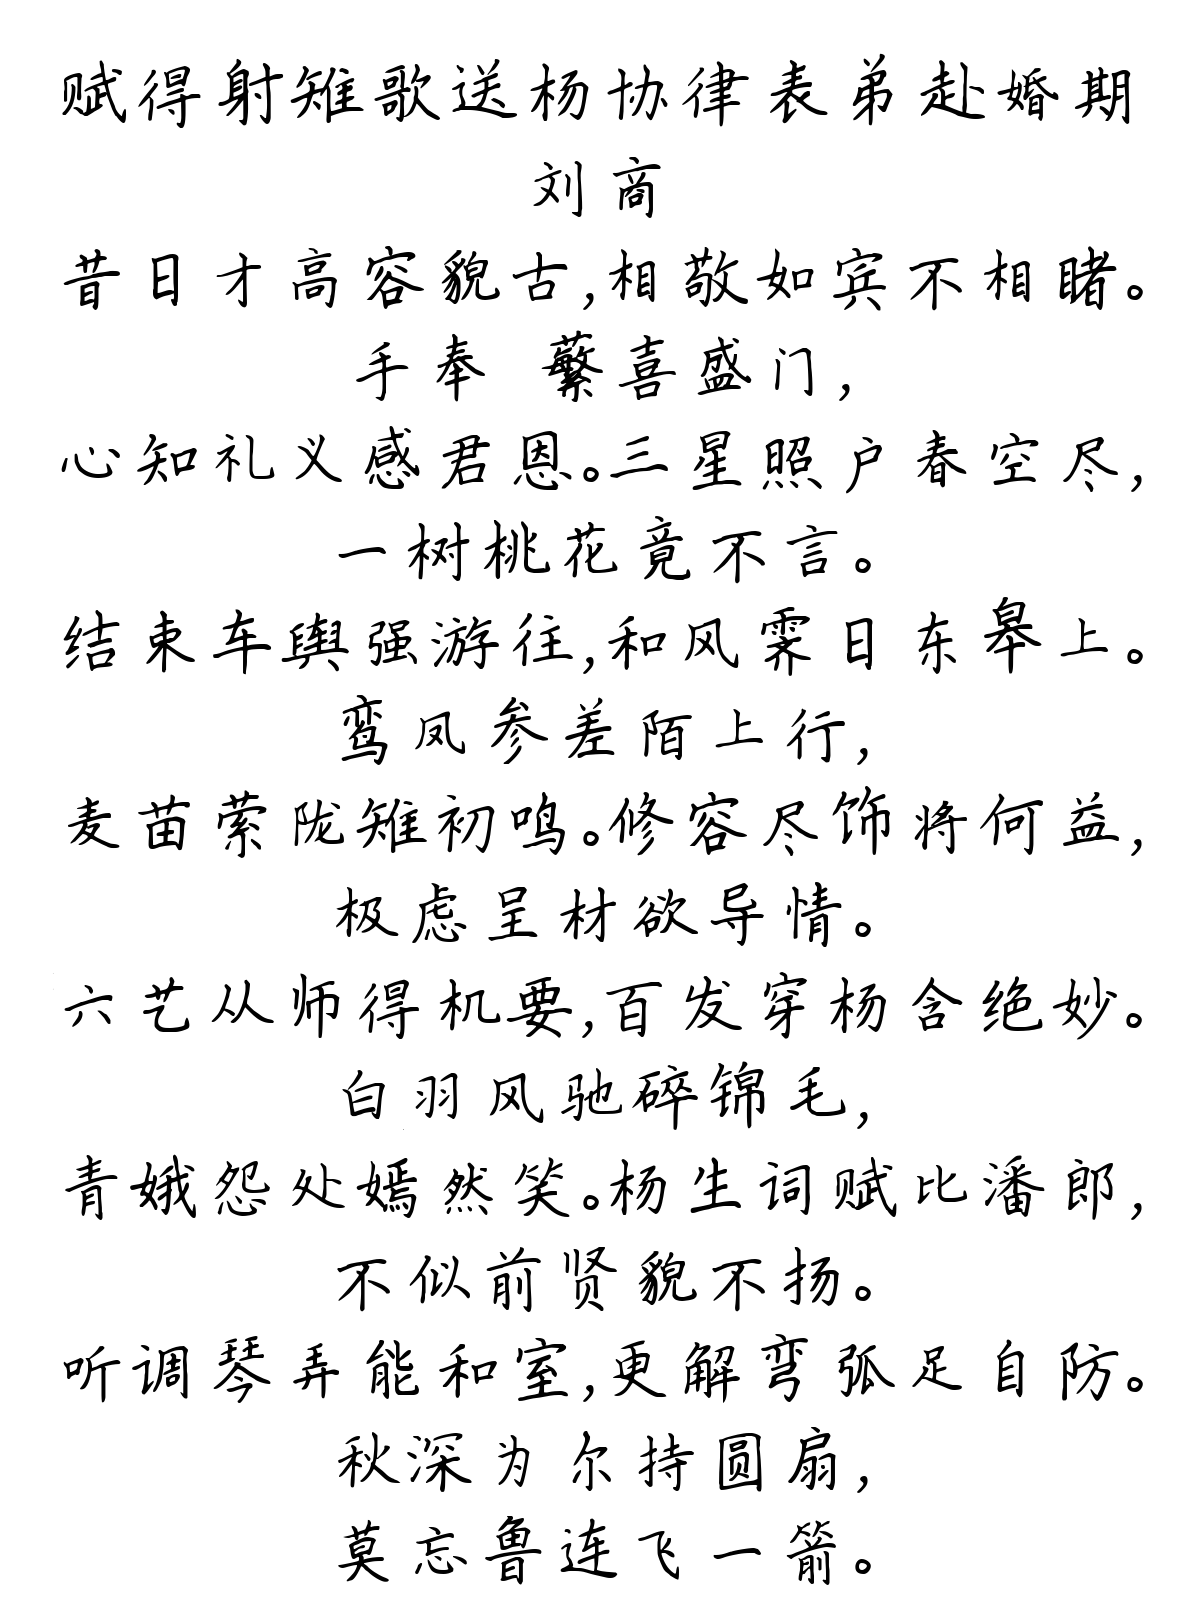 赋得射雉歌送杨协律表弟赴婚期
刘商
昔日才高容貌古,相敬如宾不相睹。
手奉 蘩喜盛门,
心知礼义感君恩。三星照户春空尽,
一树桃花竟不言。
结束车舆强游往,和风霁日东皋上。
鸾凤参差陌上行,
麦苗萦陇雉初鸣。修容尽饰将何益,
极虑呈材欲导情。
六艺从师得机要,百发穿杨含绝妙。
白羽风驰碎锦毛,
青娥怨处嫣然笑。杨生词赋比潘郎,
不似前贤貌不扬。
听调琴弄能和室,更解弯弧足自防。
秋深为尔持圆扇,
莫忘鲁连飞一箭。